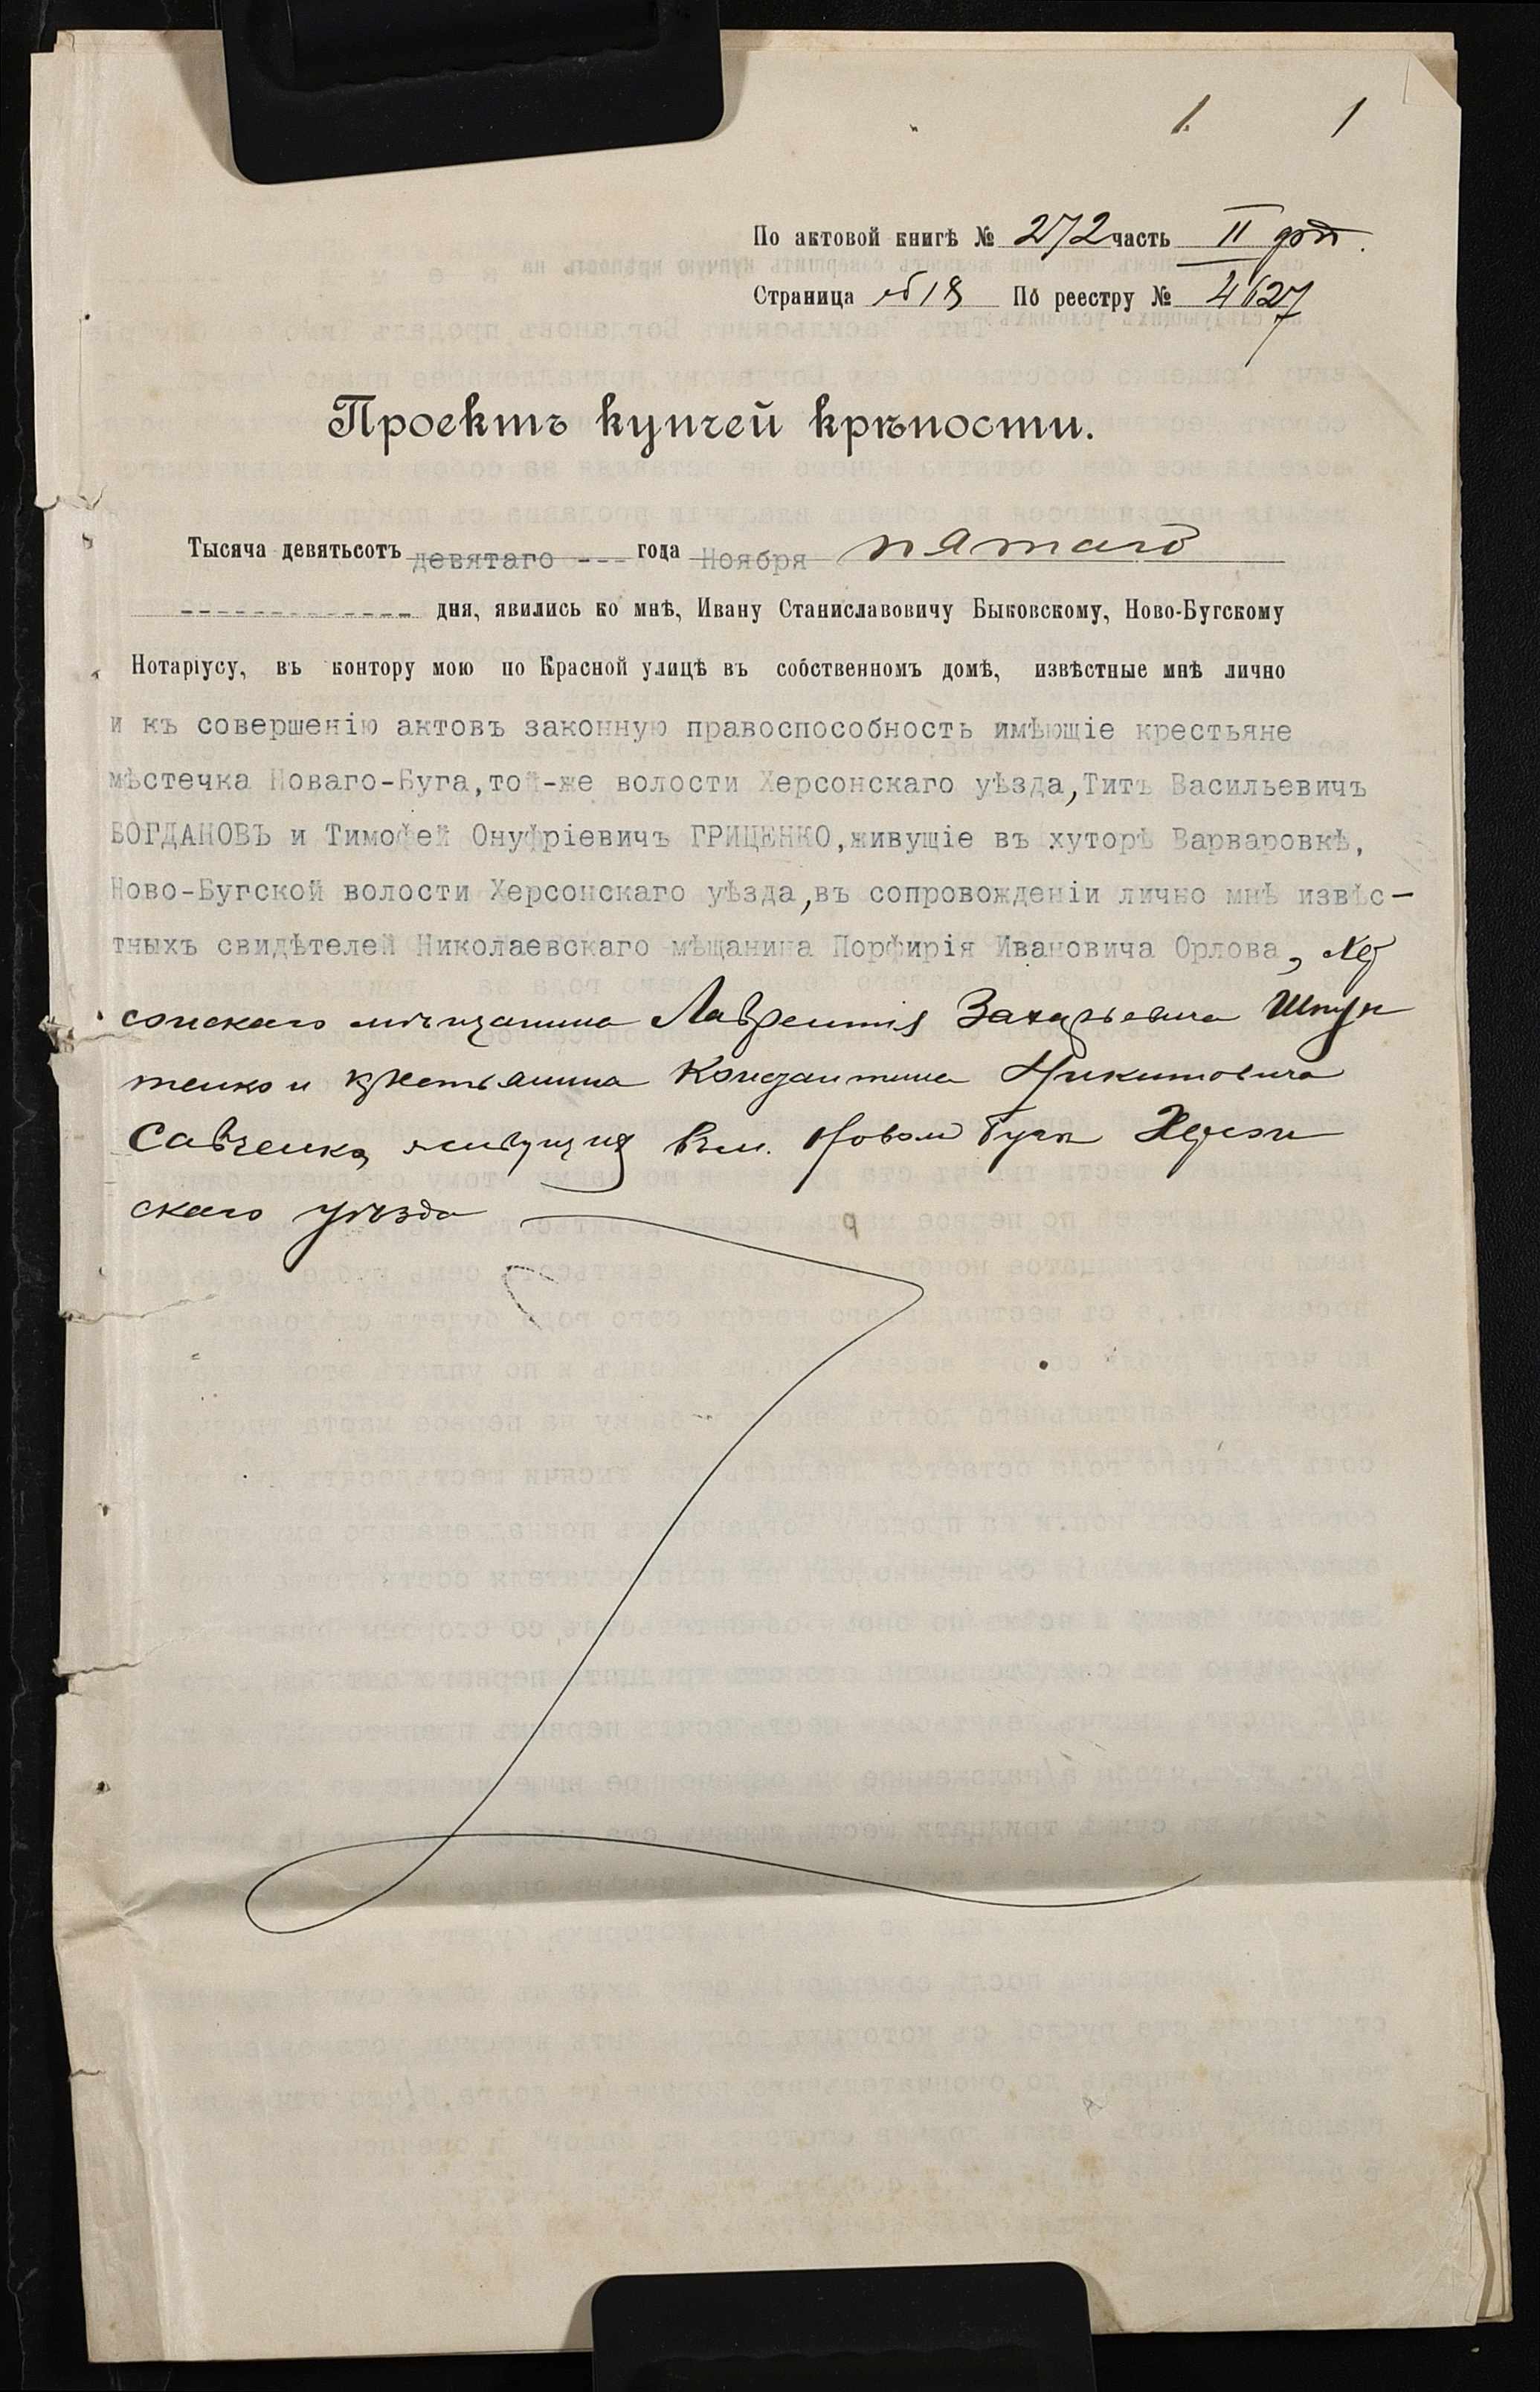 1. 1
По актовой книгѣ № 272 часть II доп.
Страница №18 По реестру № 4627
Проектъ купчей крѣпости.
Тысяча девятьсотъ девятаго --- года Ноября пятаго
------------- дня, явились ко мнѣ, Ивану Станиславовичу Быковскому, Ново-Бугскому
Нотаріусу, въ контору мою по Красной улицѣ въ собственномъ домѣ, извѣстные мнѣ лично
и къ совершенію актовъ законную правоспособность имѣющіе крестьяне
мѣстечка Новаго-Буга,той-же волости Херсонскаго уѣзда,Титъ Васильевичъ
БОГДАНОВЪ и Тимофей Онуфріевичъ ГРИЦЕНКО,живущіе въ хуторѣ Варваровкѣ,
Ново-Бугской волости Херсонскаго уѣзда,въ сопровожденіи лично мнѣ извѣс-
тныхъ свидѣтелей Николаевскаго мѣщанина Порфирія Ивановича Орлова, Хер
сонскаго мѣщанина Лаврентія Захарьевича Шпун
тенко и крестьянина Константина Никитовича
Савченко, живущихъ въ м. Новом Бугѣ Херсон
скаго уѣзда